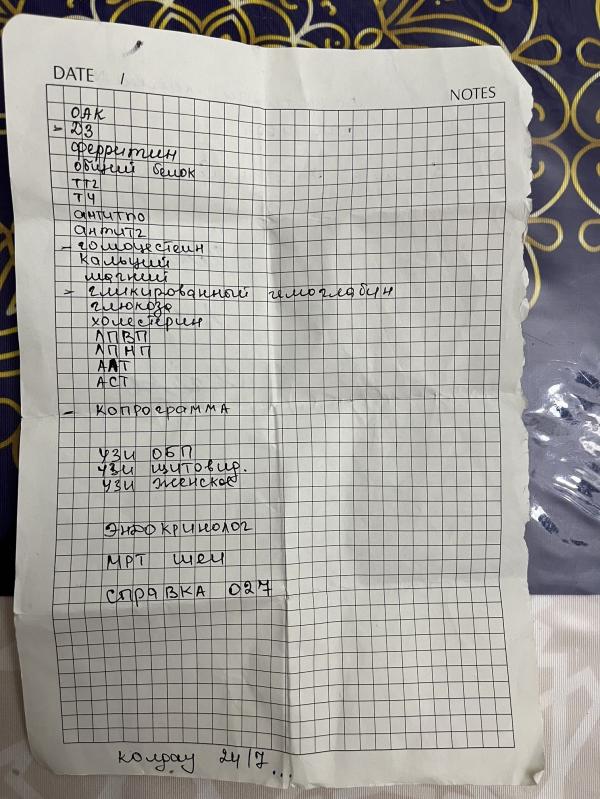 DATE /
NOTES
ОАК
- Д3
ферритин
общий белок
ТТГ
Т4
антитпо
антитг
- гомоцестеин
кальций
магний
- гликированный гемоглабин
глюкоза
холестерин
ЛПВП
ЛПНП
ААТ
АСТ
- КОПРОГРАММА
УЗИ ОБП
УЗИ ЩИТОВИД.
УЗИ ЖЕНСКОЕ
ЭНДОКРИНОЛОГ
МРТ ШЕИ
СПРАВКА 027
колдау 24/7...